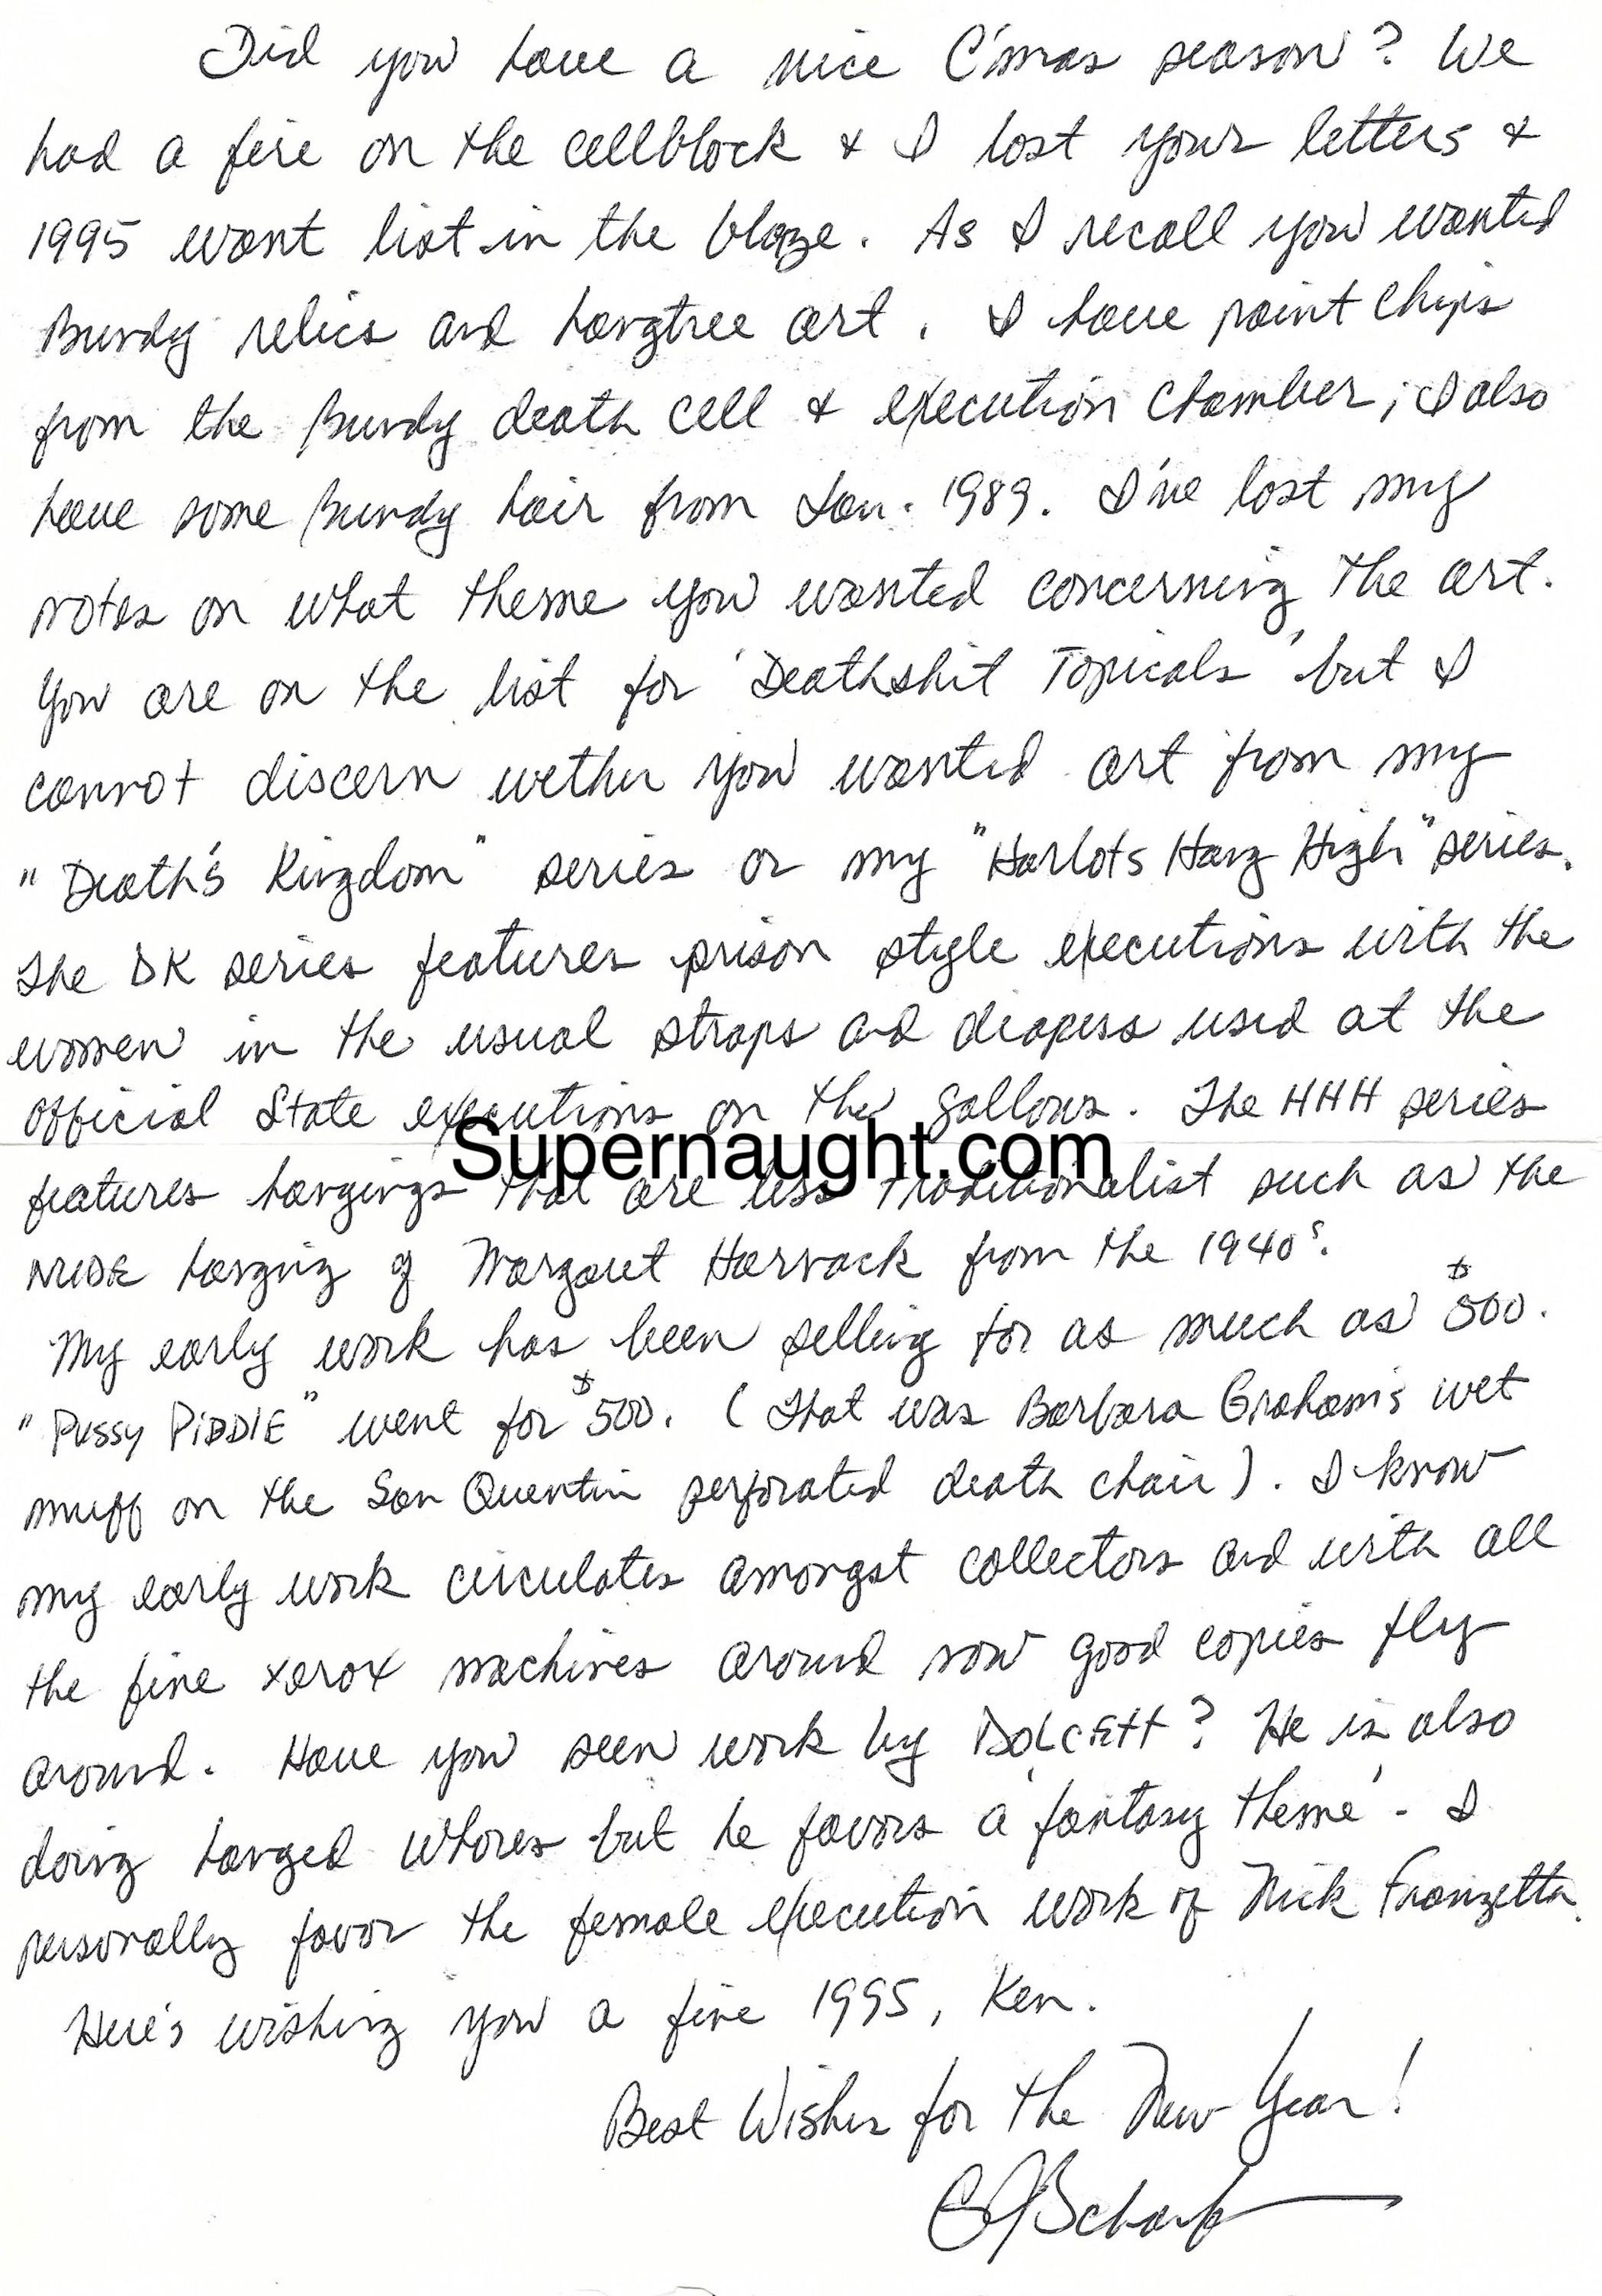 Did you have a nice C'mas season? We
had a fire on the cellblock & I lost your letters &
1995 want list in the blaze. As I recall you wanted
Bundy relics and hangtree art. I have paint chips
from the Bundy death cell & execution chamber; I also
have some Bundy hair from Jan. 1989. I've lost my
notes on what theme you wanted concerning the art.
You are on the list for 'Deathshit Topicals' but I
cannot discern wether you wanted art from my
"Death's Kingdom" series or my "Harlots Hang High" series.
The DK series features prison style executions with the
women in the usual straps and diapers used at the
official State executions on the gallows. The HHH series
Supernaught.com
features hangings that are less traditionalist such as the
NUDE hanging of Margaret Harvack from the 1940s.
My early work has been selling for as much as $500.
"PUSSY PiDDlE" went for $500. (That was Barbara Graham's wet
muff on the San Quentin perforated death chair). I know
my early work circulates amongst collectors and with all
the fine xerox machines around now good copies fly
around. Have you seen work by DOLCEtt? He is also
doing hanged whores but he favors a 'fantasy theme'. I
personally favor the female execution work of Nick Franzetta.
Here's wishing you a fine 1995, Ken.
Best Wishes for the New Year!
GJSchaefer